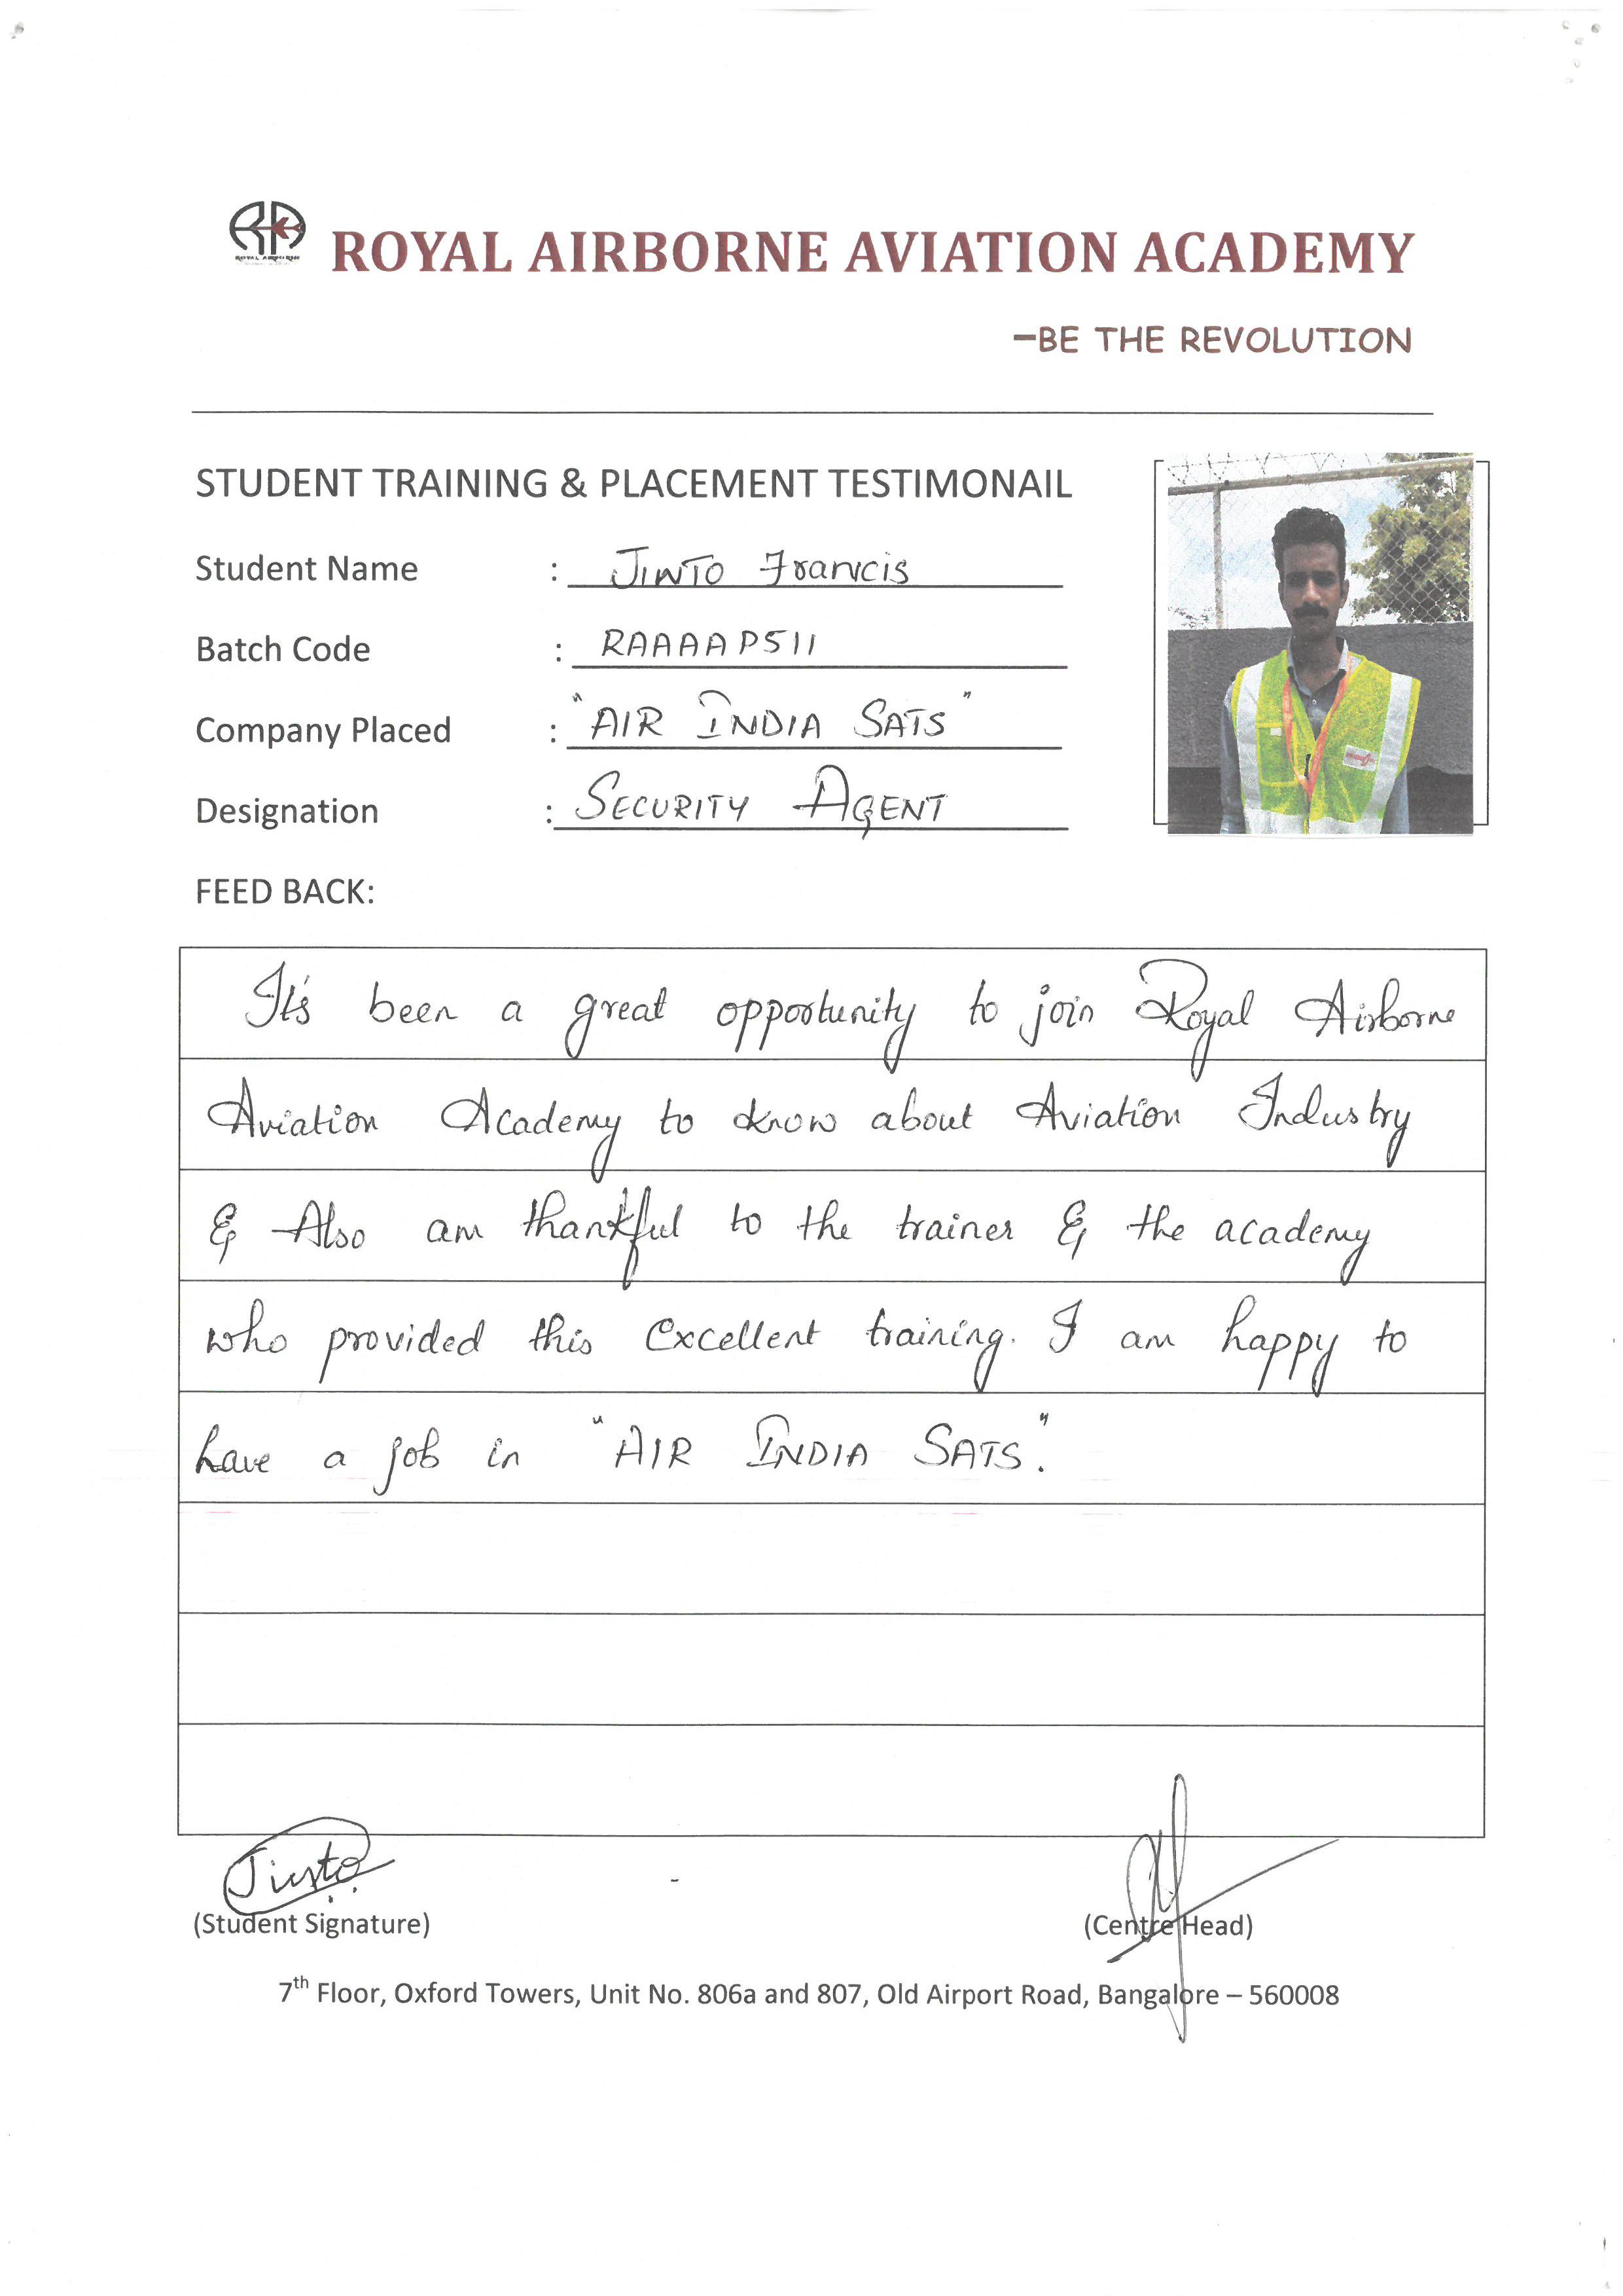 ROYAL AIRBORNE
ROYAL AIRBORNE AVIATION ACADEMY
–BE THE REVOLUTION
STUDENT TRAINING & PLACEMENT TESTIMONAIL
Student Name : JINTO Francis
Batch Code : RAAAAPS11
Company Placed : "AIR INDIA SATS"
Designation : SECURITY AGENT
FEED BACK:
It's been a great opportunity to join Royal Airborne
Aviation Academy to know about Aviation Industry
& Also am thankful to the trainer & the academy
who provided this Excellent training. I am happy to
have a job in "AIR INDIA SATS."
Jinto
(Student Signature) (Centre Head)
7th Floor, Oxford Towers, Unit No. 806a and 807, Old Airport Road, Bangalore – 560008